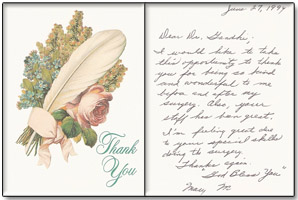 Thank
You
June 27, 1994
Dear Dr. Gandhi:
I would like to take
this opportunity to thank
you for being so kind
and wonderful to me
before and after my
surgery. Also, your
staff has been great.
I'm feeling great due
to your special skills
during the surgery.
Thanks again
"God Bless You"
Mary M.